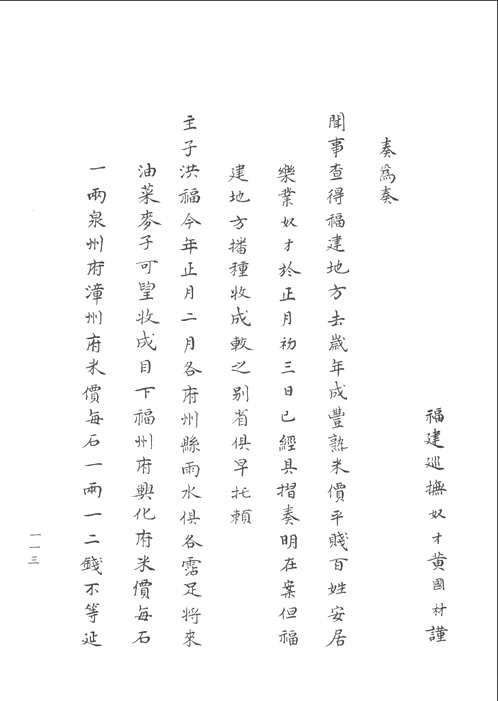 福建巡撫奴才黃國材謹
奏爲奏
聞事查得福建地方去歲年成豐熟米價平賤百姓安居
樂業奴才於正月初三日已經具摺奏明在案但福
建地方播種收成較之别省俱早托賴
主子洪福今年正月二月各府州縣雨水俱各霑足將來
油菜麥子可望收成目下福州府興化府米價每石
一兩泉州府漳州府米價每石一兩一二錢不等延
一一三